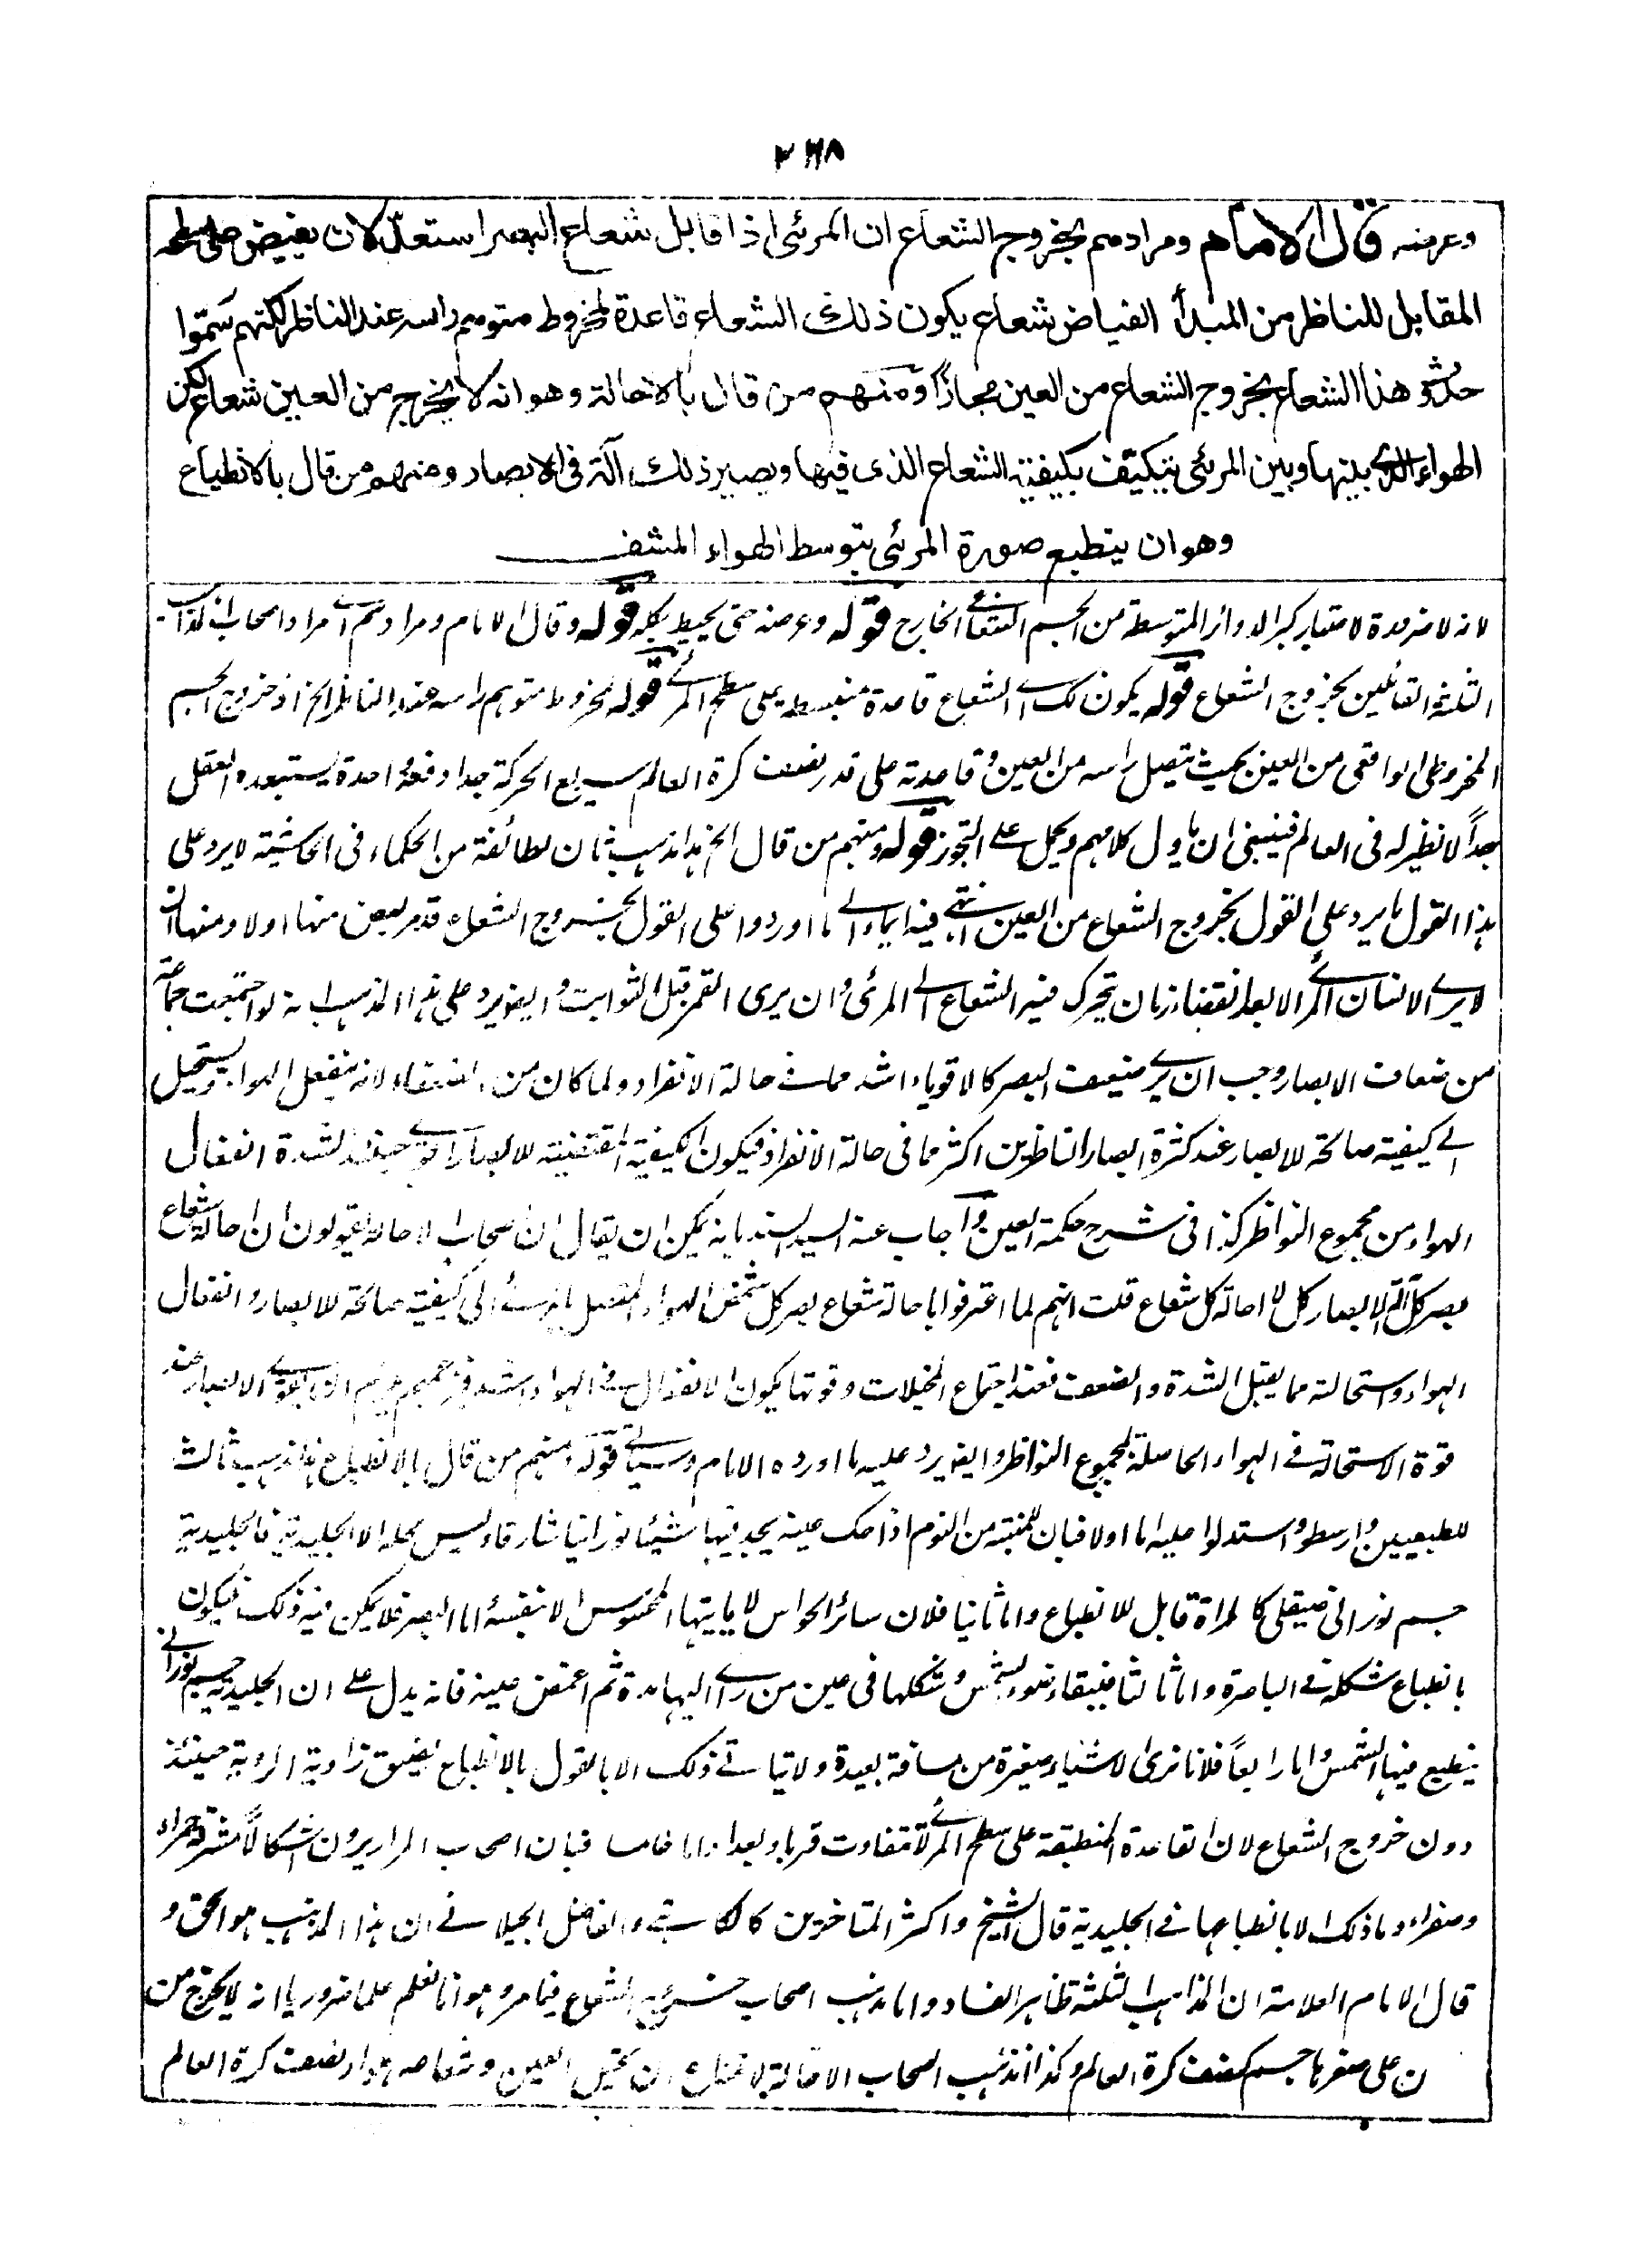 ٢٦٨
وعرضه قال الامام ومرادهم بخروج الشعاع ان المرئی اذا قابل شعاع البصر استعدّ لان یفیض علی سطحه
المقابل للناظر من المبدأ الفیاض شعاع یکون ذلك الشعاع قاعدة لمخروط متوهم راسه عند الناظر لکنهم سمّوا
حدوث هذا الشعاع بخروج الشعاع من العین مجازاً ومنهم من قال بالاحالة وهو انه لا یخرج من العین شعاع لکن
الهواء الذی بینها وبین المرئی یتکیّف بکیفیة الشعاع الذی فیها ویصیر ذلك آلة فی الابصار ومنهم من قال بالانطباع
وهو ان ینطبع صورة المرئی بتوسط الهواء المشف
لانه لا ضرورة لاعتبار کبر الدوائر المتوسطة من الجسم الشعاعی الخارج قوله وعرضه حتی یحیط بکله قوله وقال الامام ومرادهم ای مراد اصحاب المذاهب
الثلثة القائلین بخروج الشعاع قوله یکون ذلک ای الشعاع قاعدة منبسطة علی سطح المرئی قوله لمخروط متوهم راسه عند الناظر الخ اذ خروج الجسم
المخروطی الواقعی من العین بحیث یتصل راسه من العین وقاعدته علی قدر نصف کرة العالم سریع الحرکة جدا دفعة واحدة یستبعده العقل
بعداً لا نظیر له فی العالم فینبغی ان یاول کلامهم ویحمل علی التجوز قوله ومنهم من قال الخ هذا مذهب ثان لطائفة من الحکماء فی الحاشیة لا یرد علی
هذا القول ما یرد علی القول بخروج الشعاع من العین انتهی فیه ایماء الی ما اوردوا علی القول بخروج الشعاع قد مر بعض منها اولا ومنها ان
لا یری الانسان المرئی الا بعد انقضاء زمان تحرک فیه الشعاع الی المرئی وان یری القمر قبل الثوابت وایضا یرد علی هذا المذهب انه لو اجتمعت جماعة
من ضعاف الابصار وجب ان یری ضعیف البصر کالاقویاء اشد مما فی حالة الانفراد ولما کان من الضعفاء لانه ینفعل الهواء ویستحیل
الی کیفیة صالحة للابصار عند کثرة ابصار الناظرین اکثر مما فی حالة الانفراد فیکون الکیفیة المقتضیة للابصار اقوی حینئذ لشدة انفعال
الهواء من مجموع النواظر کذا فی شرح حکمة العین واجاب عنه السید السند بانه یمکن ان یقال ان اصحاب الاحالة یقولون ان احالة شعاع
بصر کل آلة لابصار کل لا احالة کل شعاع قلت انهم لما اعترفوا باحالة شعاع بصر کل شخص الهواء المتصل بالمرئی الی کیفیة صالحة للابصار وانفعال
الهواء واستحالته مما یقبل الشدة والضعف فعند اجتماع المحیلات وقوتها یکون الانفعال فی الهواء اشد الابصار عند
قوة الاستحالة فی الهواء الحاصلة لمجموع النواظر وایضا یرد علیه ما اورده الامام وسیأتی قوله ومنهم من قال بالانطباع هذا مذهب ثالث
للطبیعیین وارسطو واستدلوا علیه اما اولا فبان المنتبه من النوم اذا حک عینه یجد فیها شیئا نورانیا شارقا ولیس محله الا الجلیدیة فالجلیدیة
جسم نورانی صیقلی کالمراة قابل للانطباع واما ثانیا فلان سائر الحواس لا یاتیها المحسوس الا بنفسه اما البصر فلا یمکن فیه ذلک فیکون
بانطباع شکله فی الباصرة واما ثالثا فببقاء ضوء الشمس وشکلها فی عین من رای الیها مدة ثم اغمض عینه فانه یدل علی ان الجلیدیة جسم نورانی
ینطبع فیها الشمس واما رابعاً فلانا نری الاشیاء صغیرة من مسافة بعیدة ولا یتاتی ذلک الا بالقول بالانطباع لضیق زاویة الرویة حینئذ
دون خروج الشعاع لان القاعدة المنطبقة علی سطح المرئی لا تتفاوت قربا وبعدا واما خامسا فبان اصحاب المرار یرون اشکالاً مشرقة حمراء
وصفراء وما ذلک الا بانطباعها فی الجلیدیة قال الشیخ واکثر المتاخرین کالکاتبی والفاضل الجیلانی ان هذا المذهب هو الحق و
قال الامام العلامة ان المذاهب الثلثة ظاهر الفساد واما مذهب اصحاب خروج الشعاع فیما مر وهو انا نعلم علما ضروریا انه لا یخرج من
علی صغرها جسم کنصف کرة العالم وکذا مذهب اصحاب الاحالة لامتناع ان یحیل العین وشعاعه هواء نصف کرة العالم